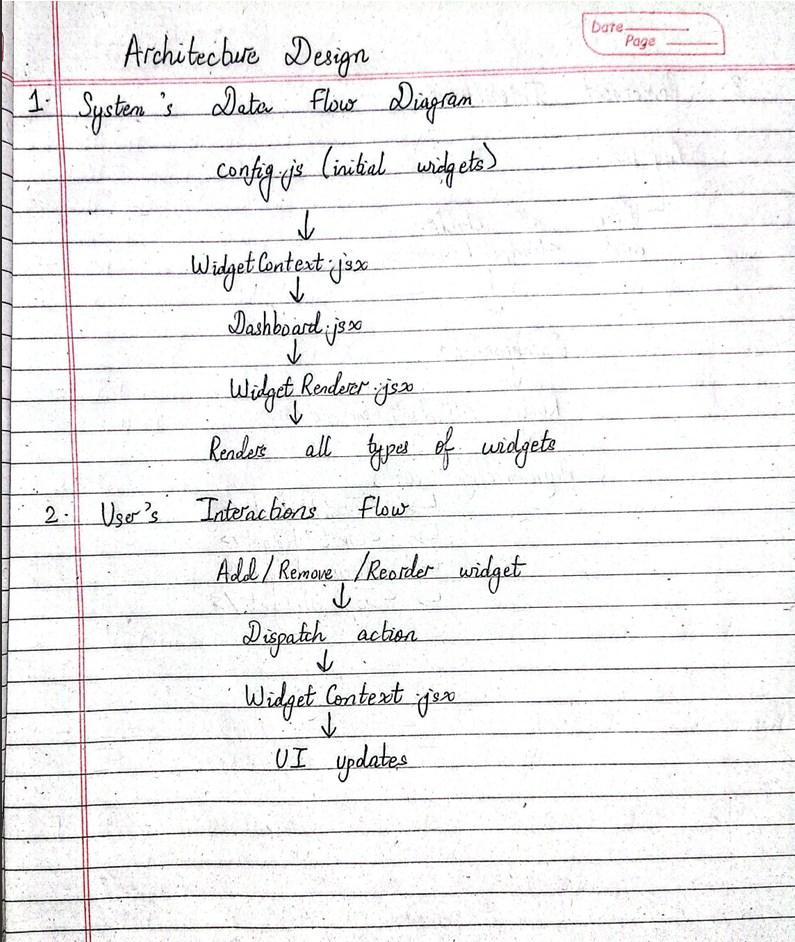 Date
Page
Architecture Design
1. System's Data Flow Diagram
config.js (initial widgets)
↓
WidgetContext.jsx
↓
Dashboard.jsx
↓
Widget Renderer.jsx
↓
Renders all types of widgets
2. User's Interactions Flow
Add/Remove/Reorder widget
↓
Dispatch action
↓
Widget Context.jsx
↓
UI updates